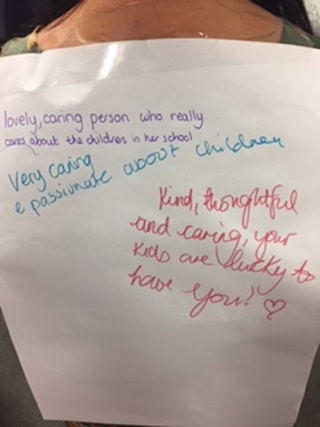 lovely, caring person who really
cares about the children in her school
Very caring
& passionate about children
Kind, thoughtful
and caring, your
kids are lucky to
have you! ♡